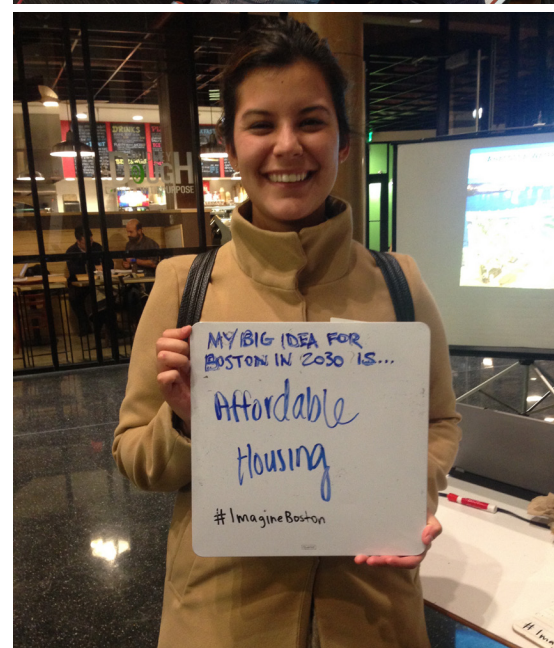 DRINKS
OUGH
PURPOSE
MY BIG IDEA FOR
BOSTON IN 2030 IS...
Affordable
Housing
#ImagineBoston